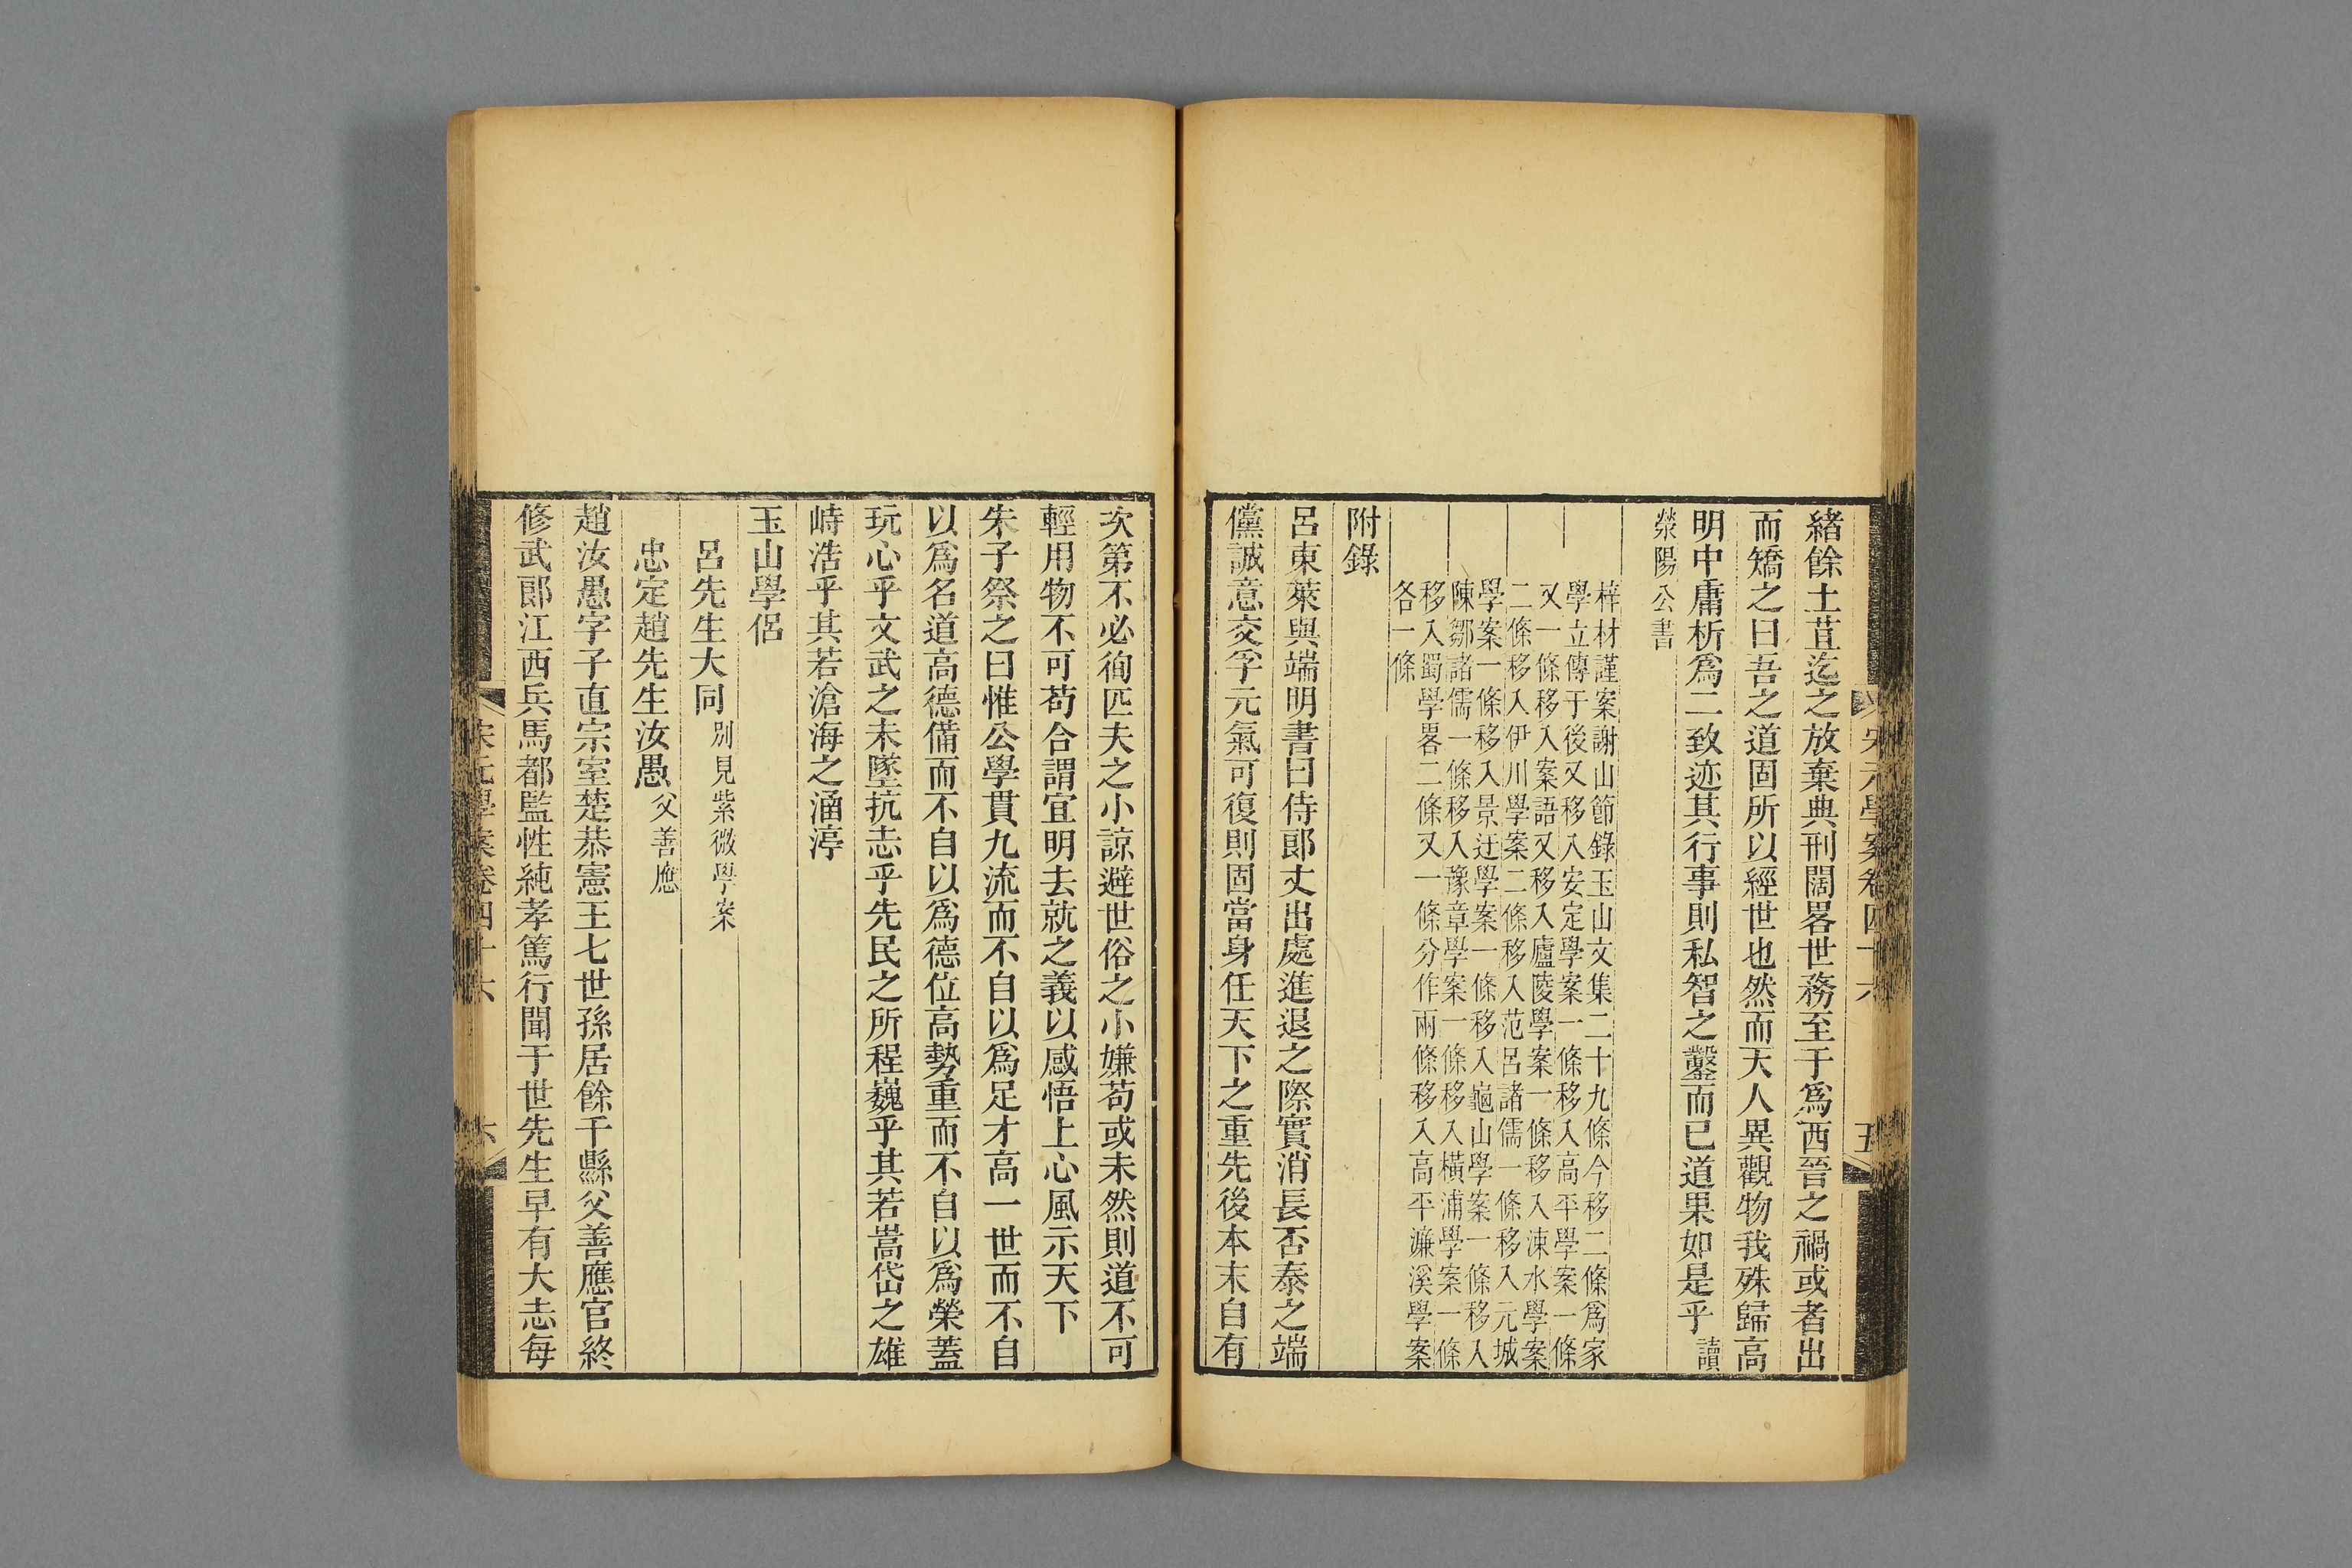 宋元學案卷四十六 五
緒餘土苴迄之放棄典刑闊畧世務至于爲西晉之禍或者出
而矯之曰吾之道固所以經世也然而天人異觀物我殊歸高
明中庸析爲二致迹其行事則私智之鑿而已道果如是乎讀
滎陽公書
梓材謹案謝山節錄玉山文集二十九條今移二條爲家
學立傳于後又移入安定學案一條移入高平學案一條
又一條移入案語又移入廬陵學案一條移入涑水學案
二條移入伊川學案二條移入范呂諸儒一條移入元城
學案一條移入景迂學案一條移入龜山學案一條移入
陳鄒諸儒一條移入豫章學案一條移入橫浦學案一條
移入蜀學畧二條又一條分作兩條移入高平濂溪學案
各一條
附錄
呂東萊與端明書曰侍郎丈出處進退之際實消長否泰之端
儻誠意交孚元氣可復則固當身任天下之重先後本末自有
次第不必徇匹夫之小諒避世俗之小嫌苟或未然則道不可
輕用物不可苟合謂宜明去就之義以感悟上心風示天下
朱子祭之曰惟公學貫九流而不自以爲足才高一世而不自
以爲名道高德備而不自以爲德位高勢重而不自以爲榮蓋
玩心乎文武之未墜抗志乎先民之所程巍乎其若嵩岱之雄
峙浩乎其若滄海之涵渟
玉山學侶
呂先生大同別見紫微學案
忠定趙先生汝愚父善應
趙汝愚字子直宗室楚恭憲王七世孫居餘干縣父善應官終
修武郎江西兵馬都監性純孝篤行聞于世先生早有大志每
宋元學案卷四十六 六